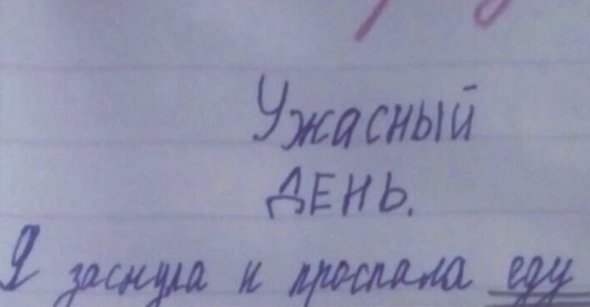 Ужасный
ДЕНЬ.
Я заснула и проспала еду